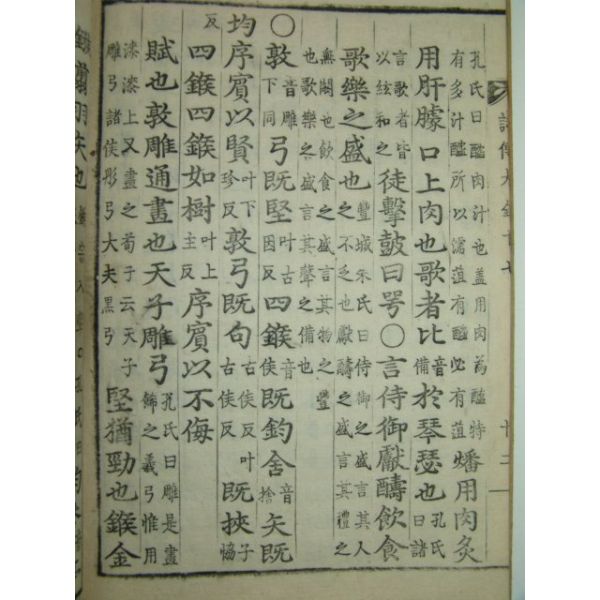 詩傳大全十七 十二
孔氏曰醢肉汁也盖用肉為醢特
有多汁醢所以濡菹有醢必有菹
燔用肉炙
用肝臄口上肉也歌者比音備於琴瑟也孔氏曰諸
言歌者皆以絃和之徒擊鼓曰咢○言侍御獻醻飲食
歌樂之盛也豐城朱氏曰侍御之盛言其人之不乏也獻醻之盛言其禮之
無闕也飲食之盛言其物之豐也歌樂之盛言其聲之備也
○敦音雕下同弓既堅叶古因反四鍭音侯既鈞舍音捨矢既
均序賓以賢叶下珍反敦弓既句古侯反叶古侯反既挾子協
反四鍭四鍭如樹叶上主反序賓以不侮
賦也敦雕通畫也天子雕弓孔氏曰雕是畫飾之義弓惟用
漆漆上又畫之荀子云天子雕弓諸侯彤弓大夫黑弓堅猶勁也鍭金
鏃翦羽矢也